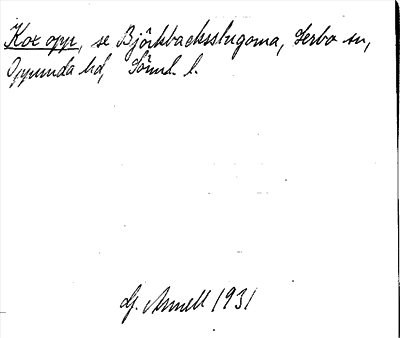 Kor opp, se Björkbacksstugorna, Lerbo sn,
Oppunda hd, Sörml. l.
G. Annell 1931